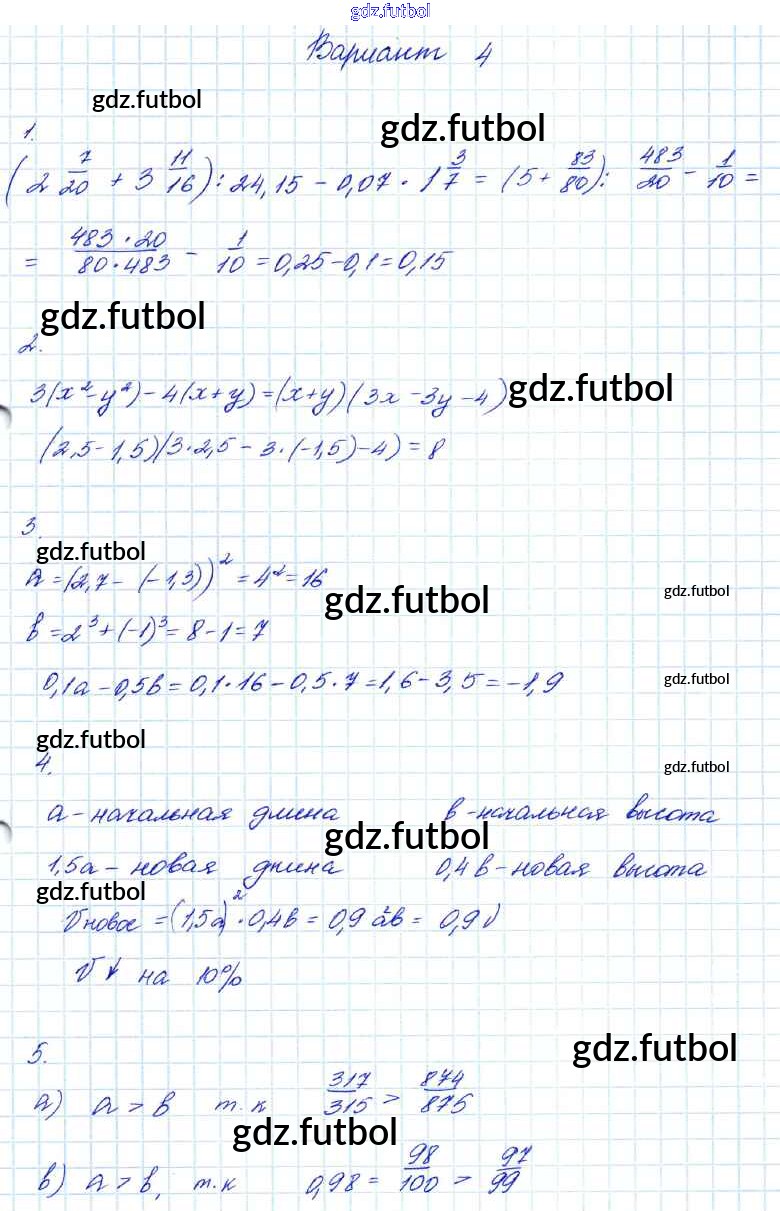 gdz.futbol
Вариант 4
gdz.futbol
gdz.futbol
1.
(2 7/20 + 3 11/16) : 24,15 - 0,07 · 1 3/7 = (5 + 83/80) : 483/20 - 1/10 =
= 483·20/80·483 - 1/10 = 0,25 - 0,1 = 0,15
gdz.futbol
2.
3(x²-y²) - 4(x+y) = (x+y)(3x-3y-4) gdz.futbol
(2,5-1,5)(3·2,5 - 3·(-1,5)-4) = 8
3.
gdz.futbol
a = (2,7 - (-1,3))² = 4² = 16
gdz.futbol
gdz.futbol
b = 2³ + (-1)³ = 8 - 1 = 7
0,1a - 0,5b = 0,1·16 - 0,5·7 = 1,6 - 3,5 = -1,9
gdz.futbol
gdz.futbol
4.
gdz.futbol
a - начальная длина b - начальная высота
gdz.futbol
1,5a - новая длина 0,4b - новая высота
gdz.futbol
Vновое = (1,5a)² · 0,4b = 0,9a²b = 0,9V
V↓ на 10%
5.
gdz.futbol
а) a > b т.к 317/315 > 874/875
gdz.futbol
в) a > b, т.к 0,98 = 98/100 > 97/99